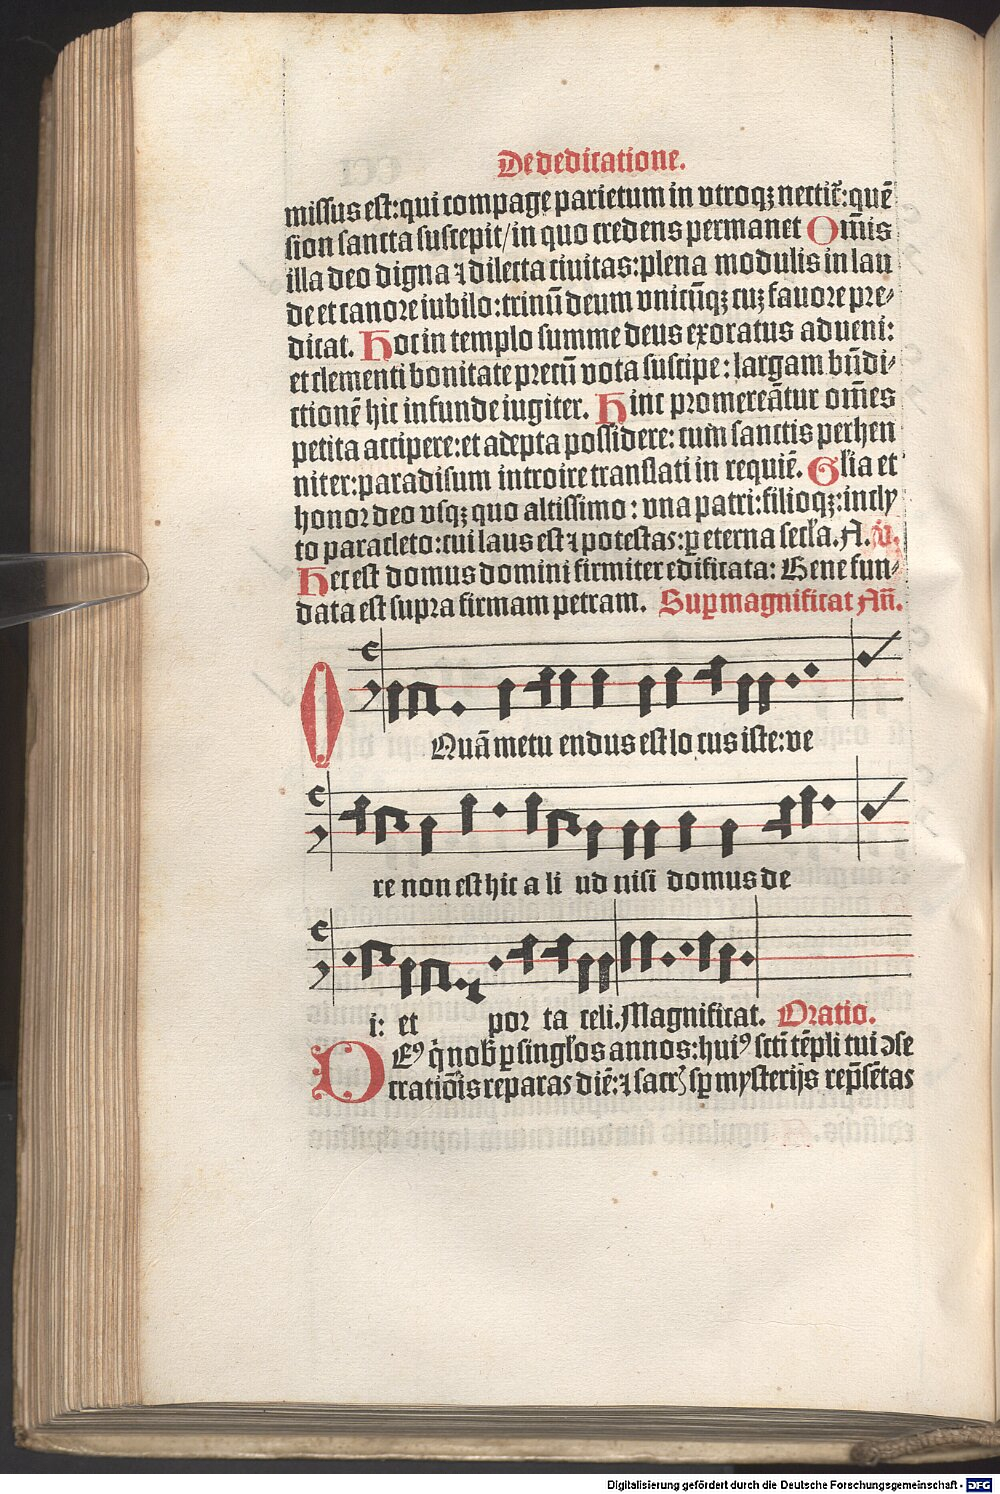 De dedicatione.
missus est: qui compage parietum in vtroqꝫ nectit᷑: quē
sion sancta suscepit/ in quo credens permanet Om̄is
illa deo digna ⁊ dilecta ciuitas: plena modulis in lau
de et canore iubilo: trinū deum vnicūqꝫ cuꝫ fauore pre⸗
dicat. Hoc in templo summe deus exoratus adueni:
et clementi bonitate precū vota suscipe: largam bn̄di⸗
ctionē hic infunde iugiter. Hinc promereātur om̄es
petita accipere: et adepta possidere: cum sanctis perhen
niter: paradisum introire translati in requiē. Gl̄ia et
honor deo vsqꝫ quo altissimo: vna patri: filioqꝫ: incly
to paracleto: cui laus est ⁊ potestas: ꝑ eterna secl̄a. A. v̄.
Hec est domus domini firmiter edificata: Bene fun⸗
data est supra firmam petram. Suꝑ magnificat An̄.
O Quā metu endus est lo cus iste: ve
re non est hic a li ud nisi domus de
i: et por ta celi. Magnificat. Oratio.
DEꝰ q̇ nob̄ ꝑ singl̄os annos: huiꝰ sct̄i tēpli tui ↄse
crationīs reparas diē: ⁊ sacrꝭ sꝑ mysterijs rep̄sētas
Digitalisierung gefördert durch die Deutsche Forschungsgemeinschaft - DFG